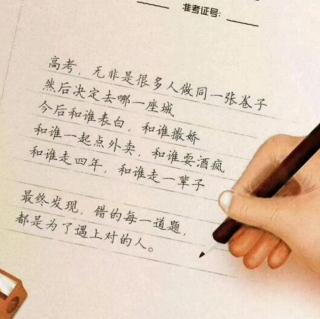 准考证号:
高考，无非是很多人做同一张卷子
然后决定去哪一座城
今后和谁表白，和谁撒娇
和谁一起点外卖，和谁耍酒疯
和谁走四年，和谁走一辈子
最终发现，错的每一道题，
都是为了遇上对的人。